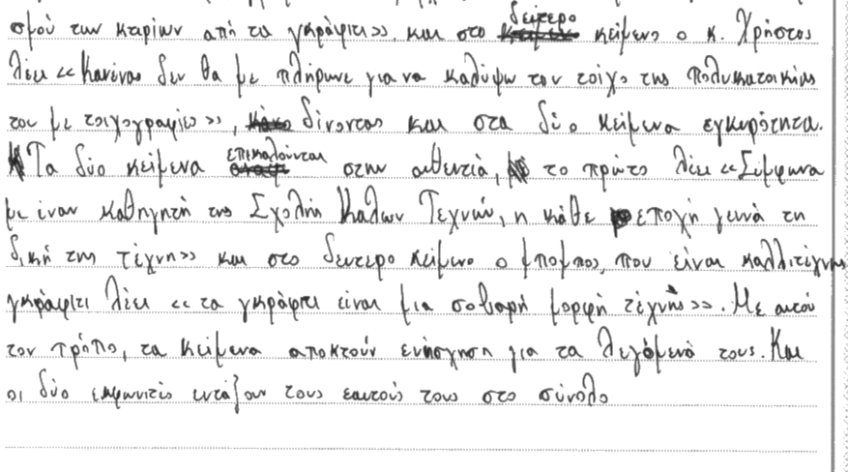 σμού των κτιρίων από τα γκράφιτι», και στο δεύτερο κείμενο ο κ. Χρήστος
λέει «Κανένας δεν θα με πλήρωνε για να καλύψω τον τοίχο της πολυκατοικίας
του με τοιχογραφίες», δίνοντας και στα δύο κείμενα εγκυρότητα.
Τα δύο κείμενα επικαλούνται στην αυθεντία, το πρώτο λέει «Σύμφωνα
με έναν καθηγητή της Σχολής Καλών Τεχνών, η κάθε εποχή γεννά τη
δική της τέχνη» και στο δεύτερο κείμενο ο μπομπος, που είναι καλλιτέχνης
γκράφιτι λέει «τα γκράφιτι είναι μια σοβαρή μορφή τέχνης». Με αυτού
τον τρόπο, τα κείμενα αποκτούν ενίσχηση για τα λεγόμενά τους. Και
οι δύο εντάζουν τους εαυτούς τους στο σύνολο